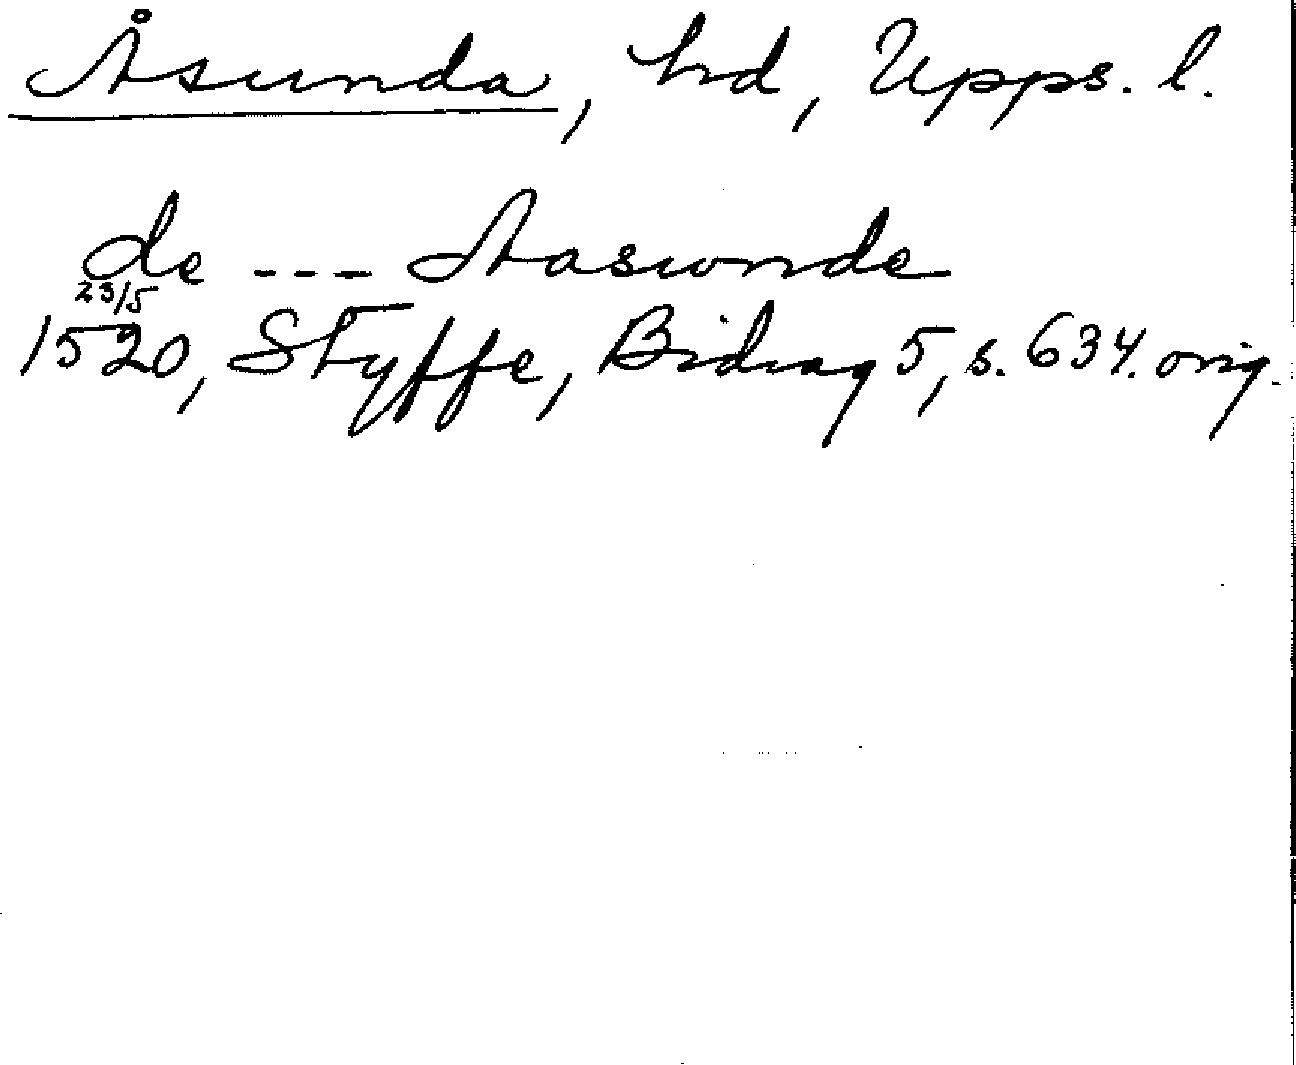 Åsunda, hd, Upps. l.
de --- Aaswnde
23/5
1520, Styffe, Bidrag 5, s. 634. orig.